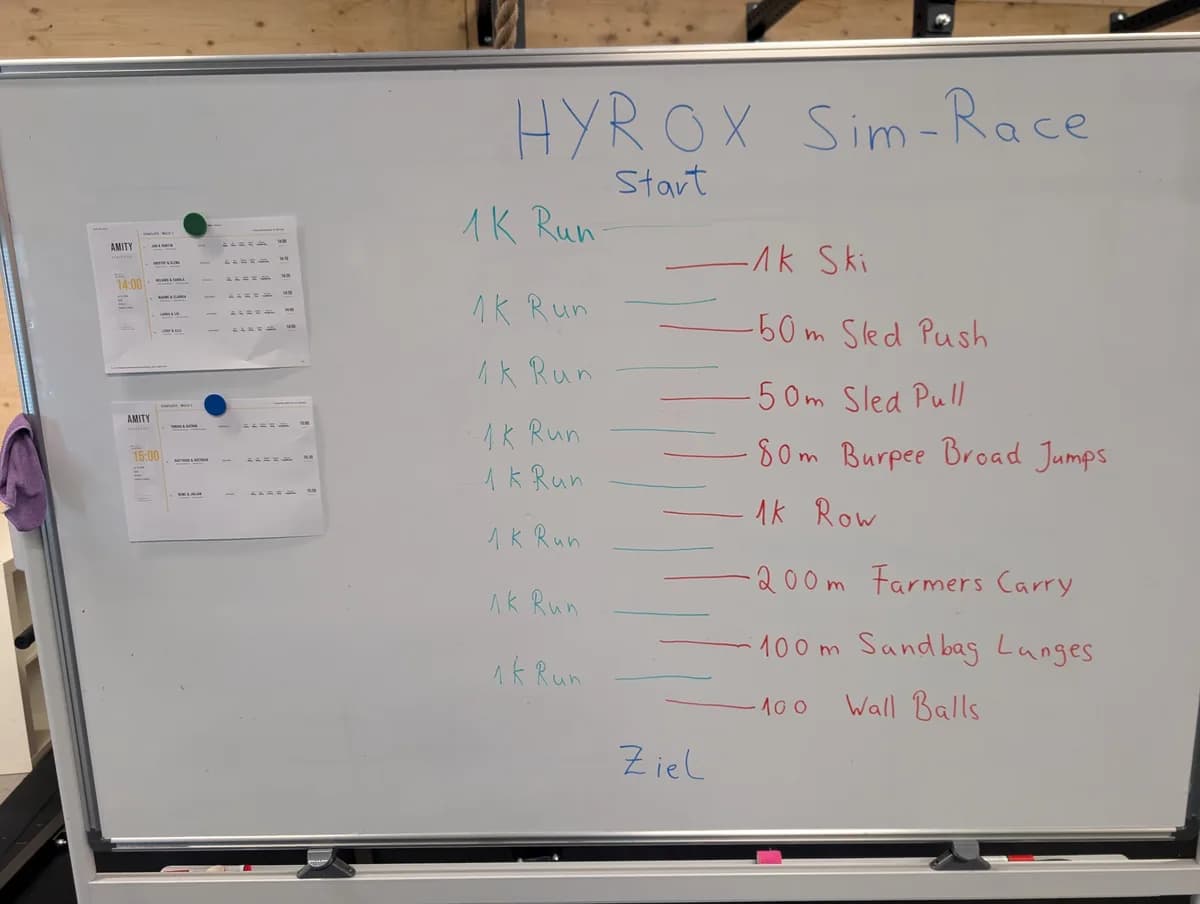 HYROX Sim-Race
Start
1K Run
1k Ski
1K Run
50m Sled Push
1k Run
50m Sled Pull
1k Run
80m Burpee Broad Jumps
1k Run
1k Row
1k Run
200m Farmers Carry
1k Run
100m Sandbag Lunges
1k Run
100 Wall Balls
Ziel
AMITY
14:00
AMITY
15:00